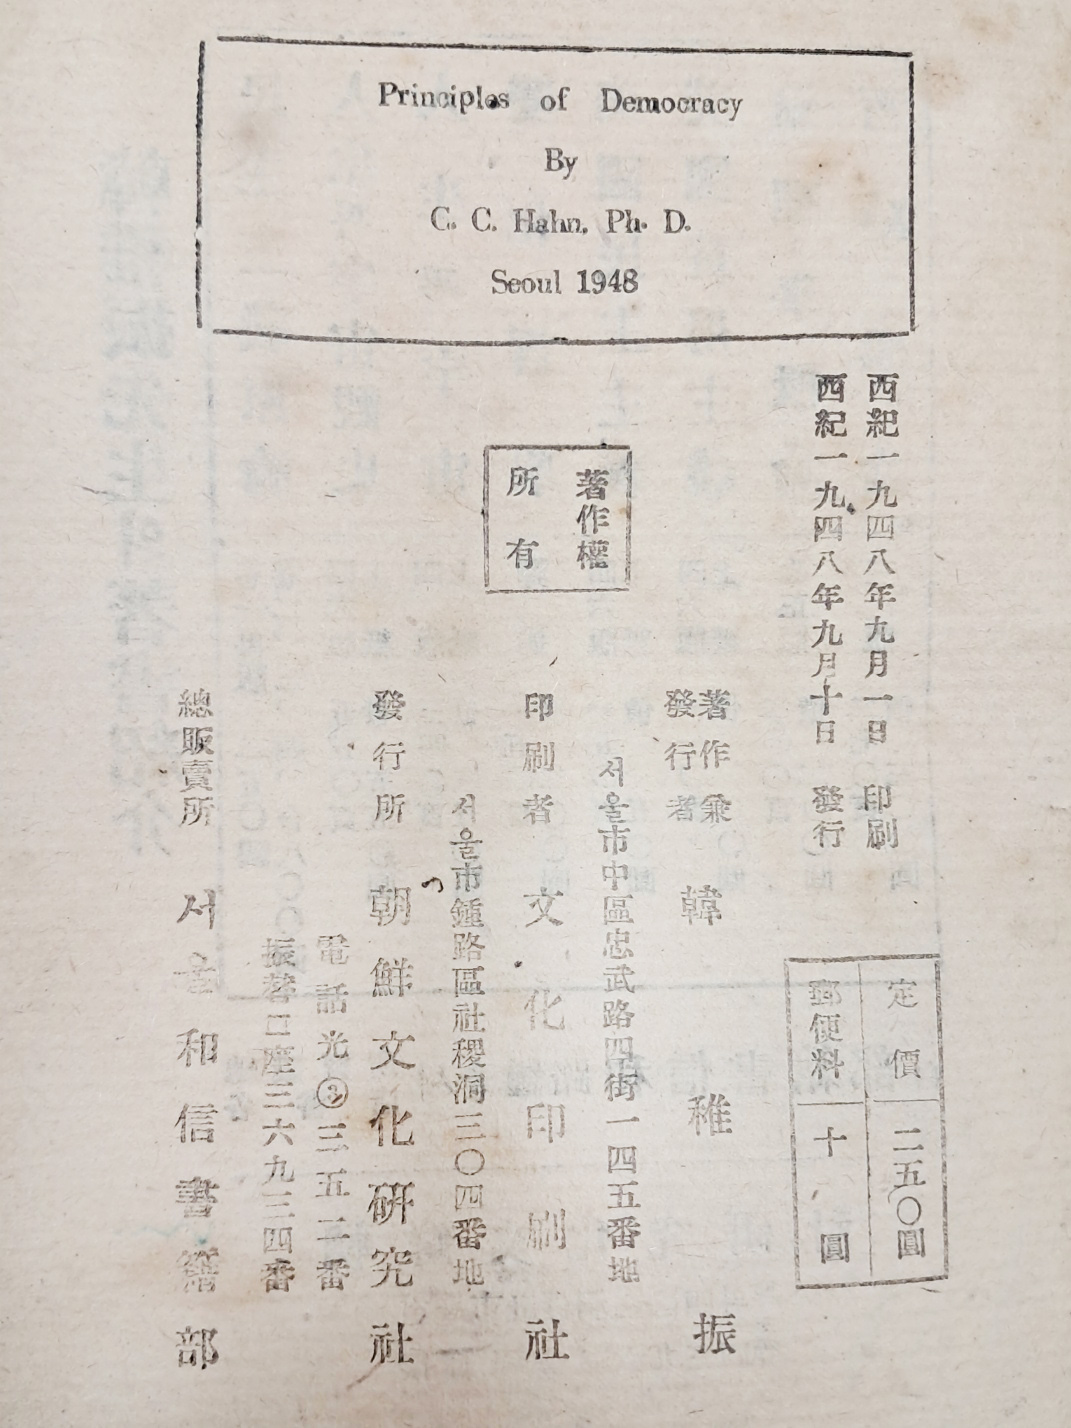 Principles of Democracy
By
C. C. Hahn. Ph. D.
Seoul 1948
西紀一九四八年九月一日 印刷
西紀一九四八年九月十日 發行
定價 二五〇圓
郵便料 十圓
著作權
所有
著作兼
發行者 韓稚振
서울市中區忠武路四街一四五番地
印刷者 文化印刷社
서울市鍾路區社稷洞三〇四番地
發行所 朝鮮文化硏究社
電話光③三五二番
振替口座三六九三四番
總販賣所 서울和信書籍部